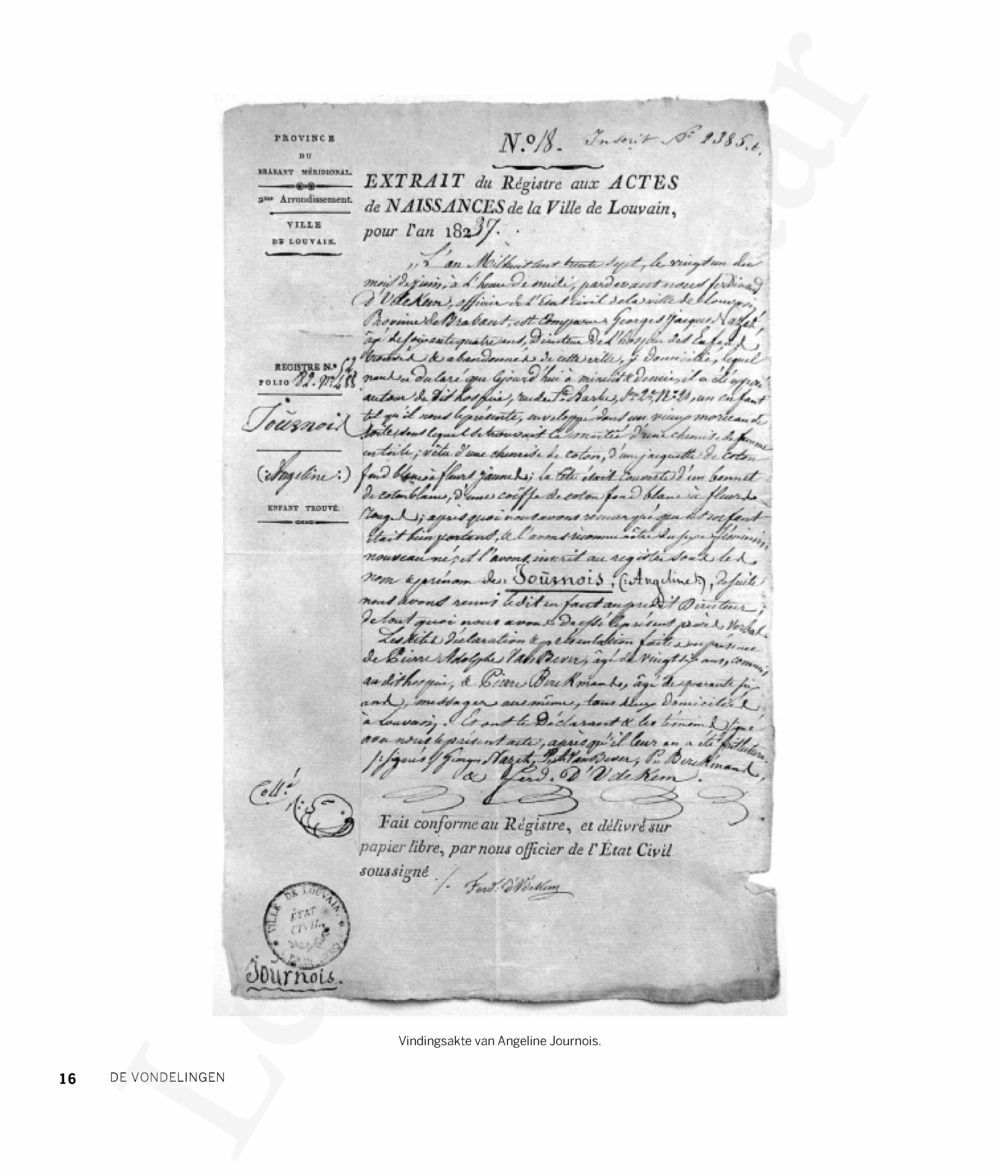 PROVINCE
DU
BRABANT MÉRIDIONAL.
2me Arrondissement.
VILLE
DE LOUVAIN.
N.o 18. Inscrit No 2385.
EXTRAIT du Régistre aux ACTES
de NAISSANCES de la Ville de Louvain,
pour l'an 18237.
L'an Mil huit cent trente sept, le vingt un du
mois de juin, à l'heure de midi, pardevant nous ferdinand
D'Udekem, officier de l'Etat civil de la ville de Louvain,
Province de Brabant, est comparu Georges Jacques
âgé de soixante quatre ans, Directeur de l'hospice des Enfans
trouvés & abandonnés de cette ville, y domicilié, lequel
nous a declaré que cejourd'hui à minuit & demie, il a été exposé
au tour dudit hospice, rue de Ste Barbe, un enfant
tel qu'il nous le présente, enveloppé dans un vieux morceau de
toile, sous lequel se trouvait la moitié d'une chemise de femme
en toile; vêtu d'une chemise de coton, d'un jaquette de coton
fond blanc à fleurs jaunes; la tête était couverte d'un bonnet
de coton blanc, d'une coëffe de coton fond blanc à fleurs
rouges; après quoi nous avons remarqué que cet enfant
était bien portant, & l'avons reconnu être du sexe féminin,
nouveau né, et l'avons inscrit au registre sous les
nom & prénom de Joũrnois, (:Angeline:), desuite
nous avons remis ledit enfant au prédit Directeur;
de tout quoi nous avons dressé le présent procès verbal.
Lesdites déclaration & présentation faites en présence
de Pierre Adolphe Van Bever, âgé de vingt ans, commis
audit hospice, & Pierre Berckmans, âgé de quarante six
ans, messager au même, tous deux domiciliés
à Louvain. Et ont le Déclarant & les témoins signé
avec nous le présent acte, après qu'il leur en a été fait lecture.
signés Georges Van Bever, P. Berckmans,
& Ferd. D'Udekem.
REGISTRE N.o 52
FOLIO 82. No 488
Joũrnois
(:Angeline:)
ENFANT TROUVÉ.
Coll.é
Fait conforme au Régistre, et délivré sur
papier libre, par nous officier de l'État Civil
soussigné
Ferd. d'Udekem
VILLE DE LOUVAIN.
ÉTAT
CIVIL.
Joũrnois.
Vindingsakte van Angeline Journois.
16 DE VONDELINGEN